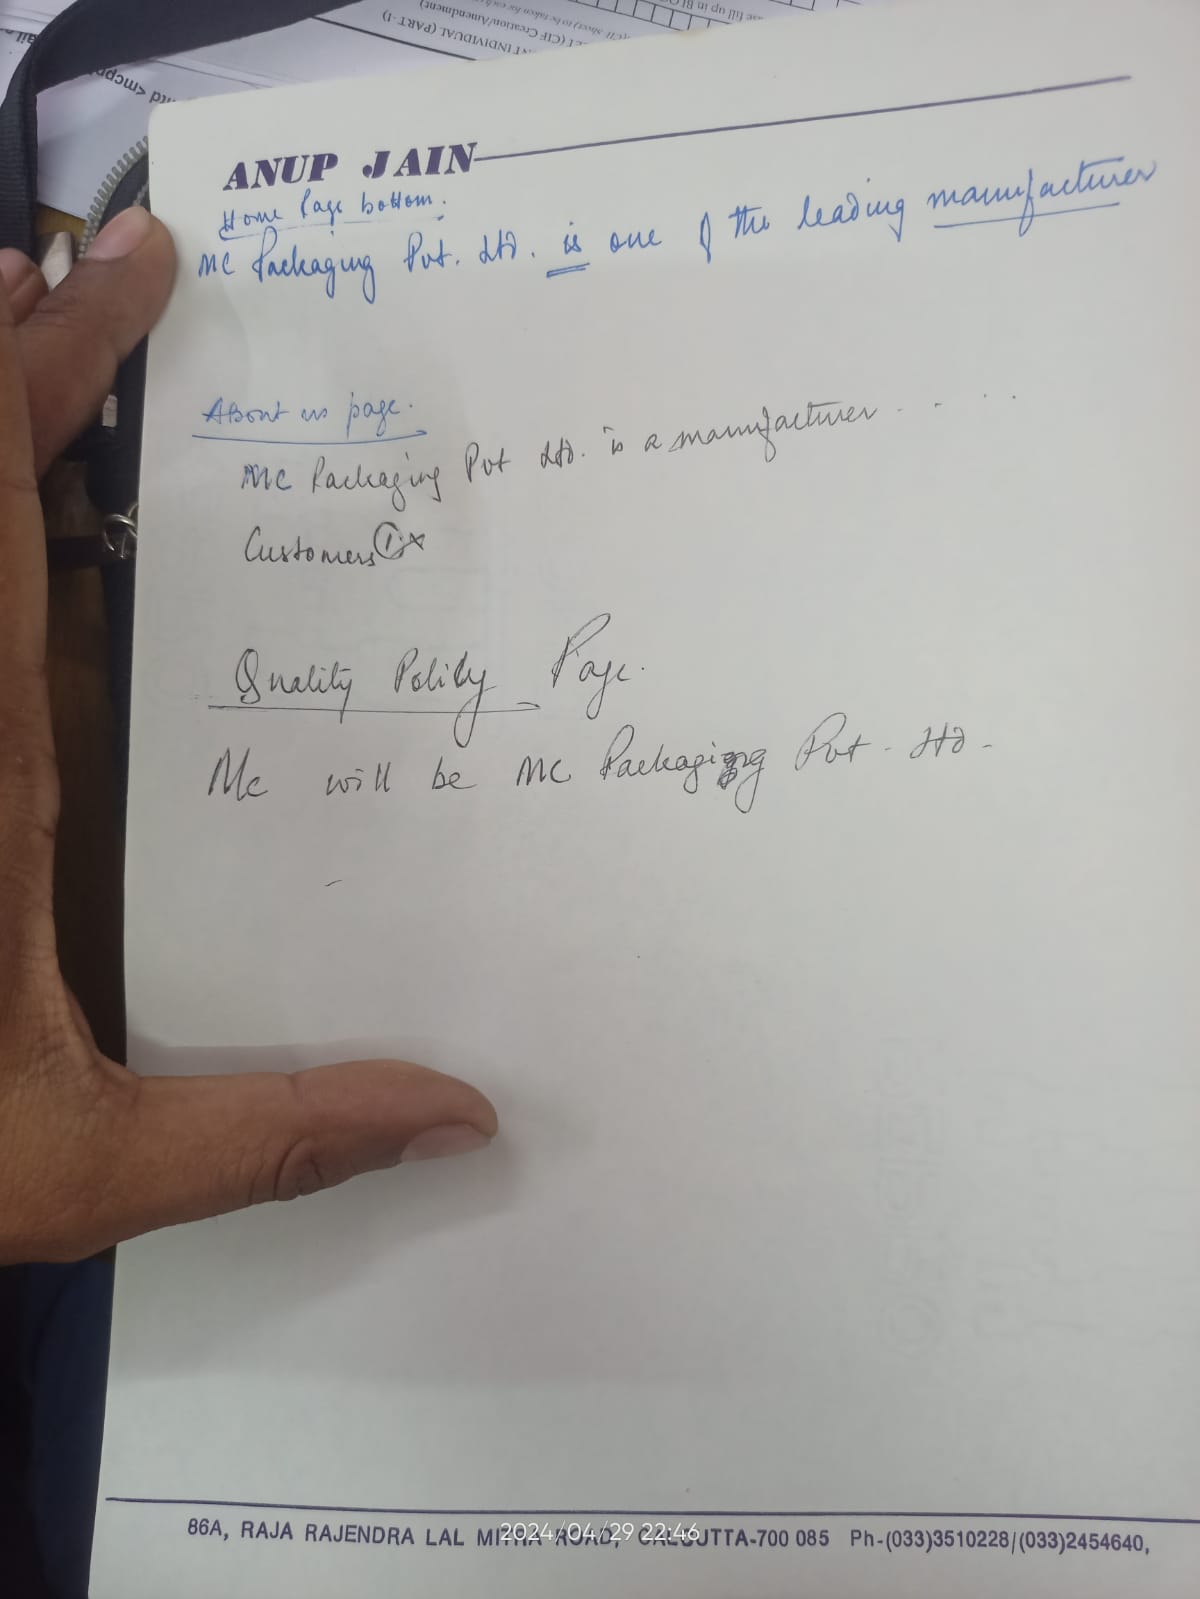 se fill up in Bl
(CIF Creation/Amendment)
INDIVIDUAL (PART-I)
ANUP JAIN
Home Page bottom.
MC Packaging Pvt. Ltd. is one of the leading manufacturer
About us page.
MC Packaging Pvt Ltd. is a manufacturer . . . .
Customers ①x
Quality Policy Page.
Mc will be MC Packaging Pvt. Ltd.
86A, RAJA RAJENDRA LAL MITRA ROAD, CALCUTTA-700 085 Ph-(033)3510228/(033)2454640,
2024/04/29 22:46